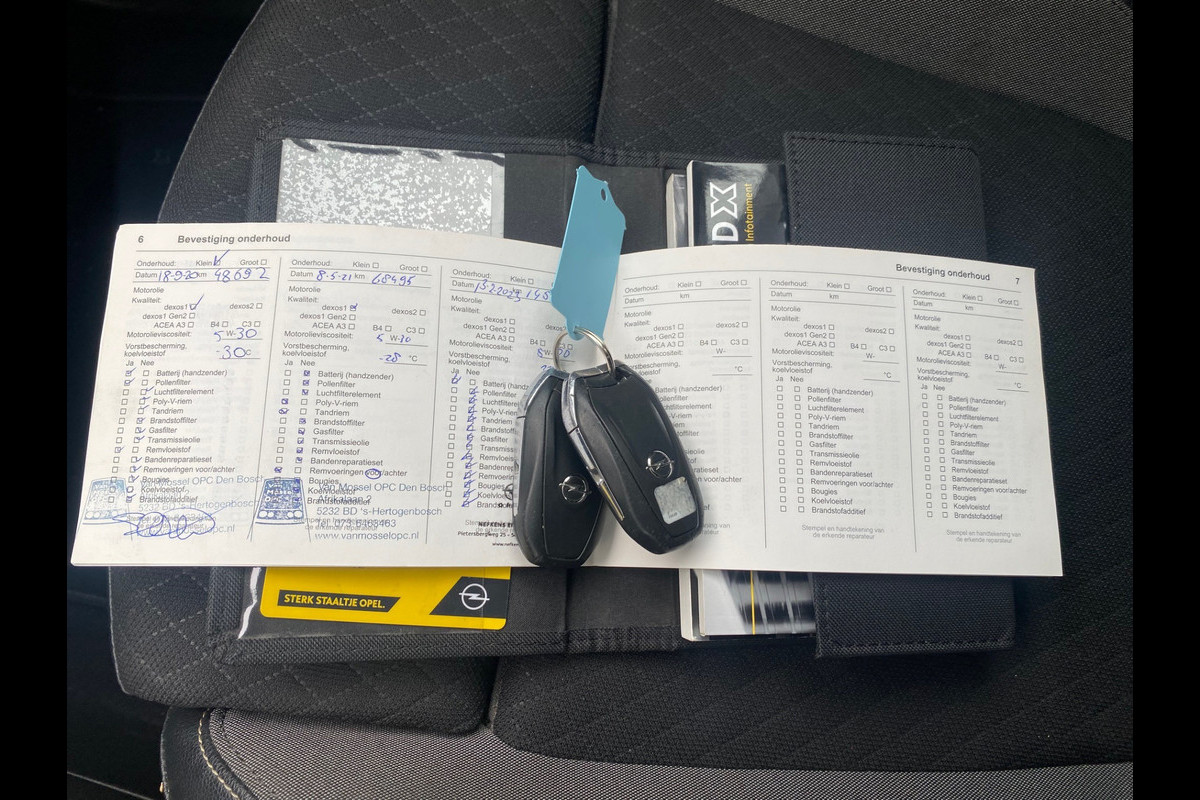 DX
Infotainment
6 Bevestiging onderhoud
Onderhoud: Klein Groot
Datum 18-9-20 km 48692
Motorolie
Kwaliteit:
dexos1 dexos2
dexos1 Gen2
ACEA A3 B4 C3
Motorolieviscositeit: 5 W-30
Vorstbescherming, koelvloeistof -30c
Ja Nee
Batterij (handzender)
Pollenfilter
Luchtfilterelement
Poly-V-riem
Tandriem
Brandstoffilter
Gasfilter
Transmissieolie
Remvloeistof
Bandenreparatieset
Remvoeringen voor/achter
Bougies
Koelvloeistof
Brandstofadditief
Van Mossel OPC Den Bosch
Onderhoud: Klein Groot
Datum 8-5-21 km 68495
Motorolie
Kwaliteit:
dexos1 dexos2
dexos1 Gen2
ACEA A3 B4 C3
Motorolieviscositeit: 5 W-30
Vorstbescherming, koelvloeistof -28 °C
Ja Nee
Batterij (handzender)
Pollenfilter
Luchtfilterelement
Poly-V-riem
Tandriem
Brandstoffilter
Gasfilter
Transmissieolie
Remvloeistof
Bandenreparatieset
Remvoeringen voor/achter
Bougies
Koelvloeistof
Van Mossel OPC Den Bosch
Afrikalaan 2
5232 BD 's-Hertogenbosch
www.vanmosselopc.nl
Onderhoud: Klein
Datum
Motorolie
Kwaliteit:
dexos1
dexos1 Gen2
ACEA A3
Motorolieviscositeit:
Vorstbescherming, koelvloeistof
Ja Nee
Pollenfilter
Poly-V-riem
Tandriem
Gasfilter
Pietersbergweg 25
Onderhoud: Klein Groot
Datum km
Motorolie
Kwaliteit:
dexos1 dexos2
dexos1 Gen2
ACEA A3 B4 C3
Motorolieviscositeit: W-
Vorstbescherming, °C
Batterij (handzender)
Pollenfilter
Luchtfilterelement
Poly-V-riem
Tandriem
Brandstoffilter
Gasfilter
Transmissieolie
Remvloeistof
Bandenreparatieset
Remvoeringen voor/achter
Bevestiging onderhoud 7
Onderhoud: Klein Groot
Datum km
Motorolie
Kwaliteit:
dexos1 dexos2
dexos1 Gen2
ACEA A3 B4 C3
Motorolieviscositeit: W-
Vorstbescherming, koelvloeistof °C
Ja Nee
Batterij (handzender)
Pollenfilter
Luchtfilterelement
Poly-V-riem
Tandriem
Brandstoffilter
Gasfilter
Transmissieolie
Remvloeistof
Bandenreparatieset
Remvoeringen voor/achter
Bougies
Koelvloeistof
Brandstofadditief
Stempel en handtekening van
de erkende reparateur
Onderhoud: Klein Groot
Datum km
Motorolie
Kwaliteit:
dexos1 dexos2
dexos1 Gen2
ACEA A3 B4 C3
Motorolieviscositeit: W-
Vorstbescherming, koelvloeistof °C
Ja Nee
Batterij (handzender)
Pollenfilter
Luchtfilterelement
Poly-V-riem
Tandriem
Brandstoffilter
Gasfilter
Transmissieolie
Remvloeistof
Bandenreparatieset
Remvoeringen voor/achter
Bougies
Koelvloeistof
Brandstofadditief
Stempel en handtekening van
de erkende reparateur
STERK STAALTJE OPEL.